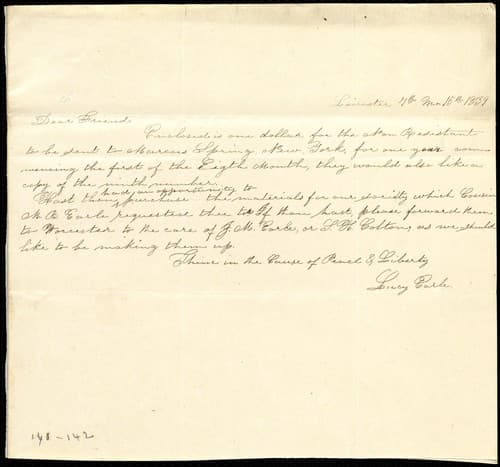 Leicester 7th Mo. 16th 1839
Dear Friend
Enclosed is one dollar for the Non Resistant
to be sent to Marcus Spring New York, for one year com
mencing the first of the Eigth Month, they would also like a
copy of the ninth number.
had, an oppertunity to
Hast thou purchase the materials for our society which Cousin
M. A. Earle requested thee to If thou hast, please forward them
to Worcester to the care of J. M. Earle, or S. H. Colton, as we should
like to be making them up.
Thine in the Cause of Peace & Liberty
Lucy Earle
148-142